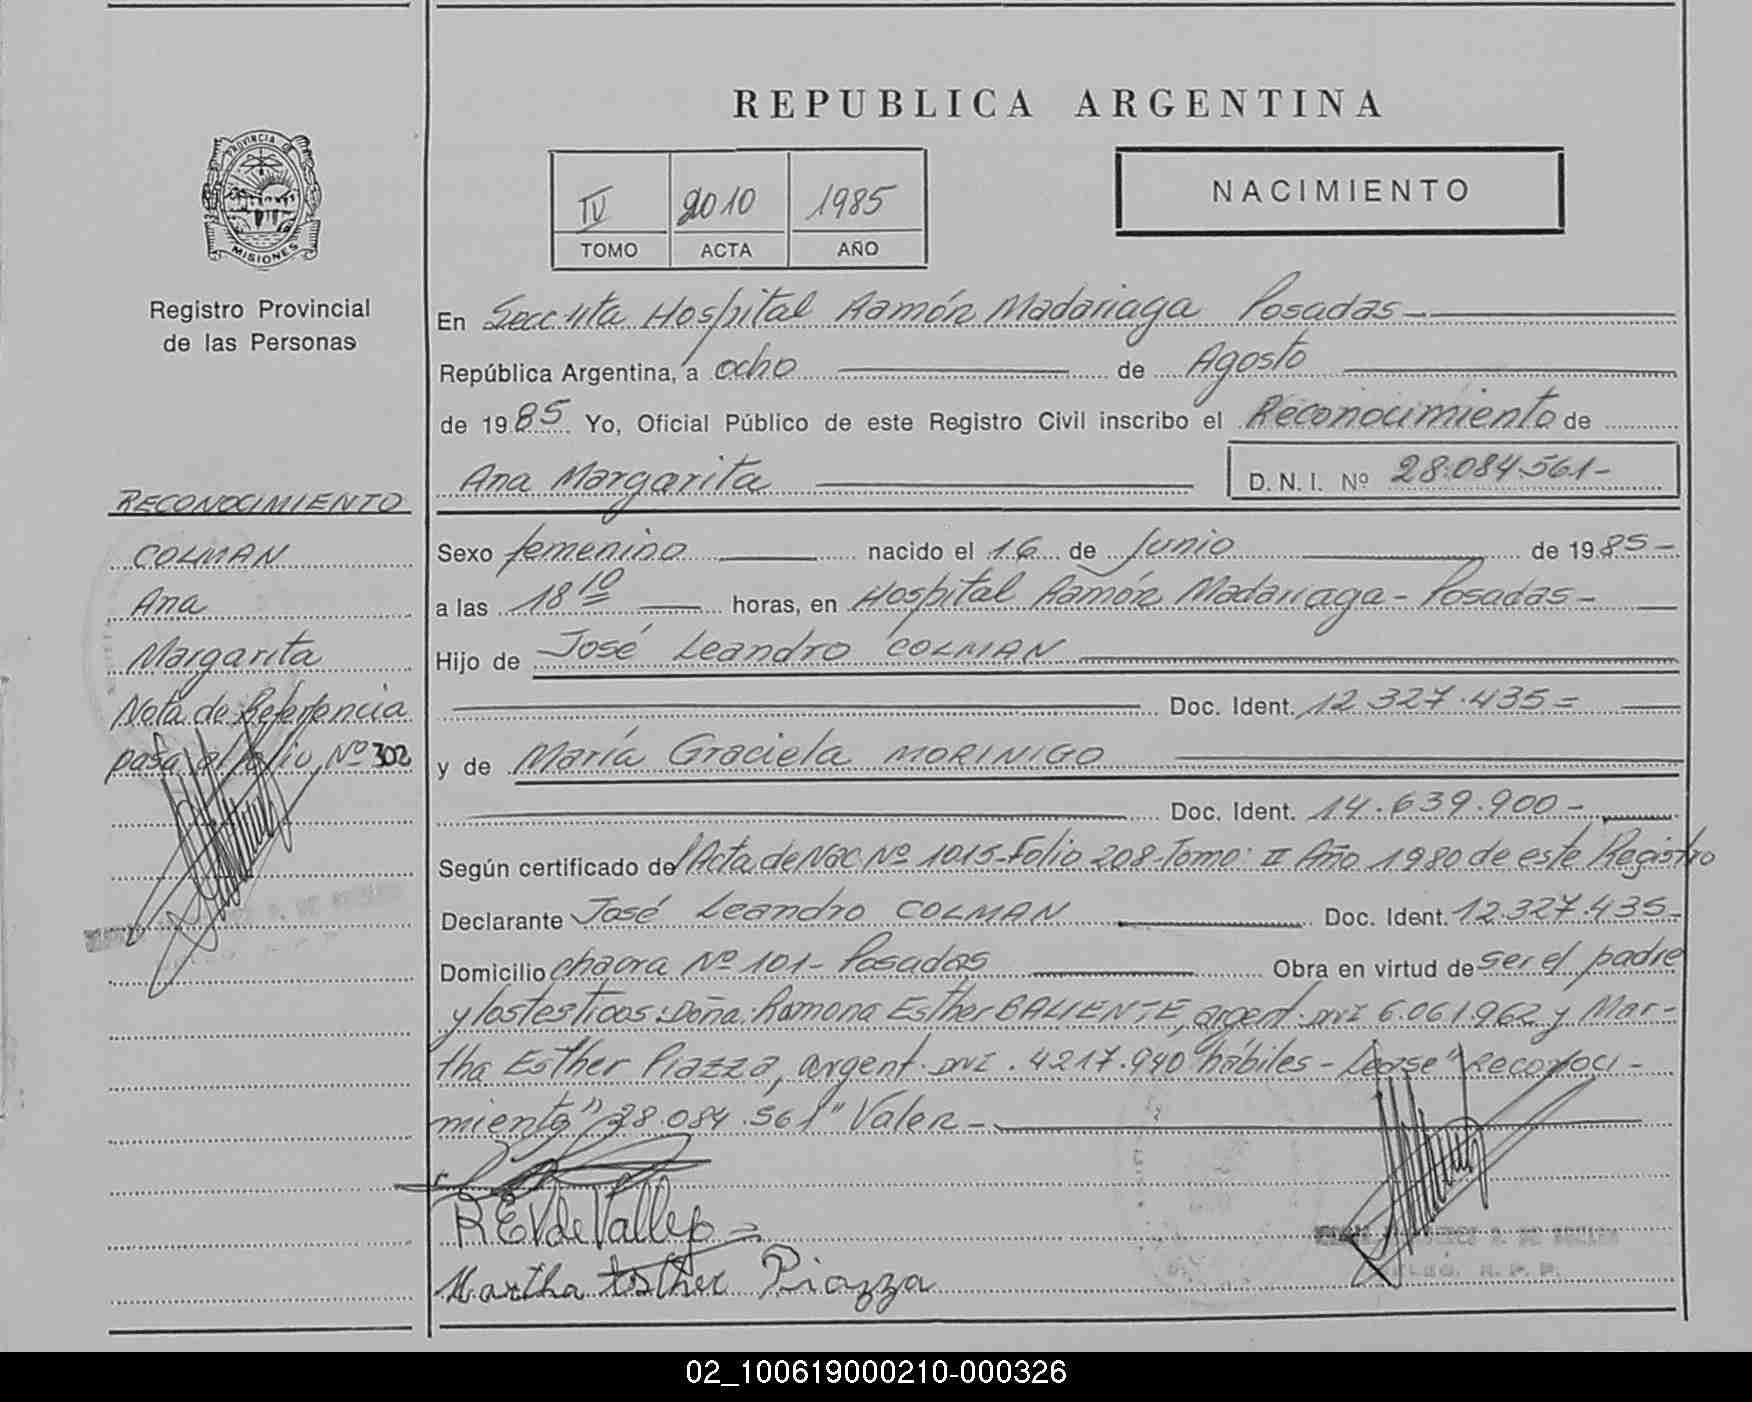 REPUBLICA ARGENTINA
PROVINCIA DE
MISIONES
Registro Provincial
de las Personas
IV 2010 1985
TOMO ACTA AÑO
NACIMIENTO
En Secc 4ta Hospital Ramón Madariaga Posadas
República Argentina, a ocho de Agosto
de 1985 Yo, Oficial Público de este Registro Civil inscribo el Reconocimiento de
Ana Margarita D. N. I. Nº 28.084.561-
RECONOCIMIENTO
COLMAN
Ana
Margarita
Nota de Referencia
pasa al folio Nº 302
Sexo femenino nacido el 16 de Junio de 1985-
a las 18 10 horas, en Hospital Ramón Madariaga - Posadas -
Hijo de José Leandro COLMAN
Doc. Ident. 12.327.435=
y de María Graciela MORINIGO
Doc. Ident. 14.639.900-
Según certificado de Acta de Nac. Nº 1015-Folio 208-Tomo: II Año 1980 de este Registro
Declarante José Leandro COLMAN Doc. Ident. 12.327.435-
Domicilio chacra Nº 101- Posadas Obra en virtud de ser el padre
y los testigos: Doña: Ramona Esther BALIENTE, argent. DNI 6.061.962 y Mar-
tha Esther Piazza, argent. DNI. 4217.940 hábiles - Lease "Reconoci-
miento" "28.084.561" Valen -
R E V de Vallejo
Martha Esther Piazza
02_100619000210-000326